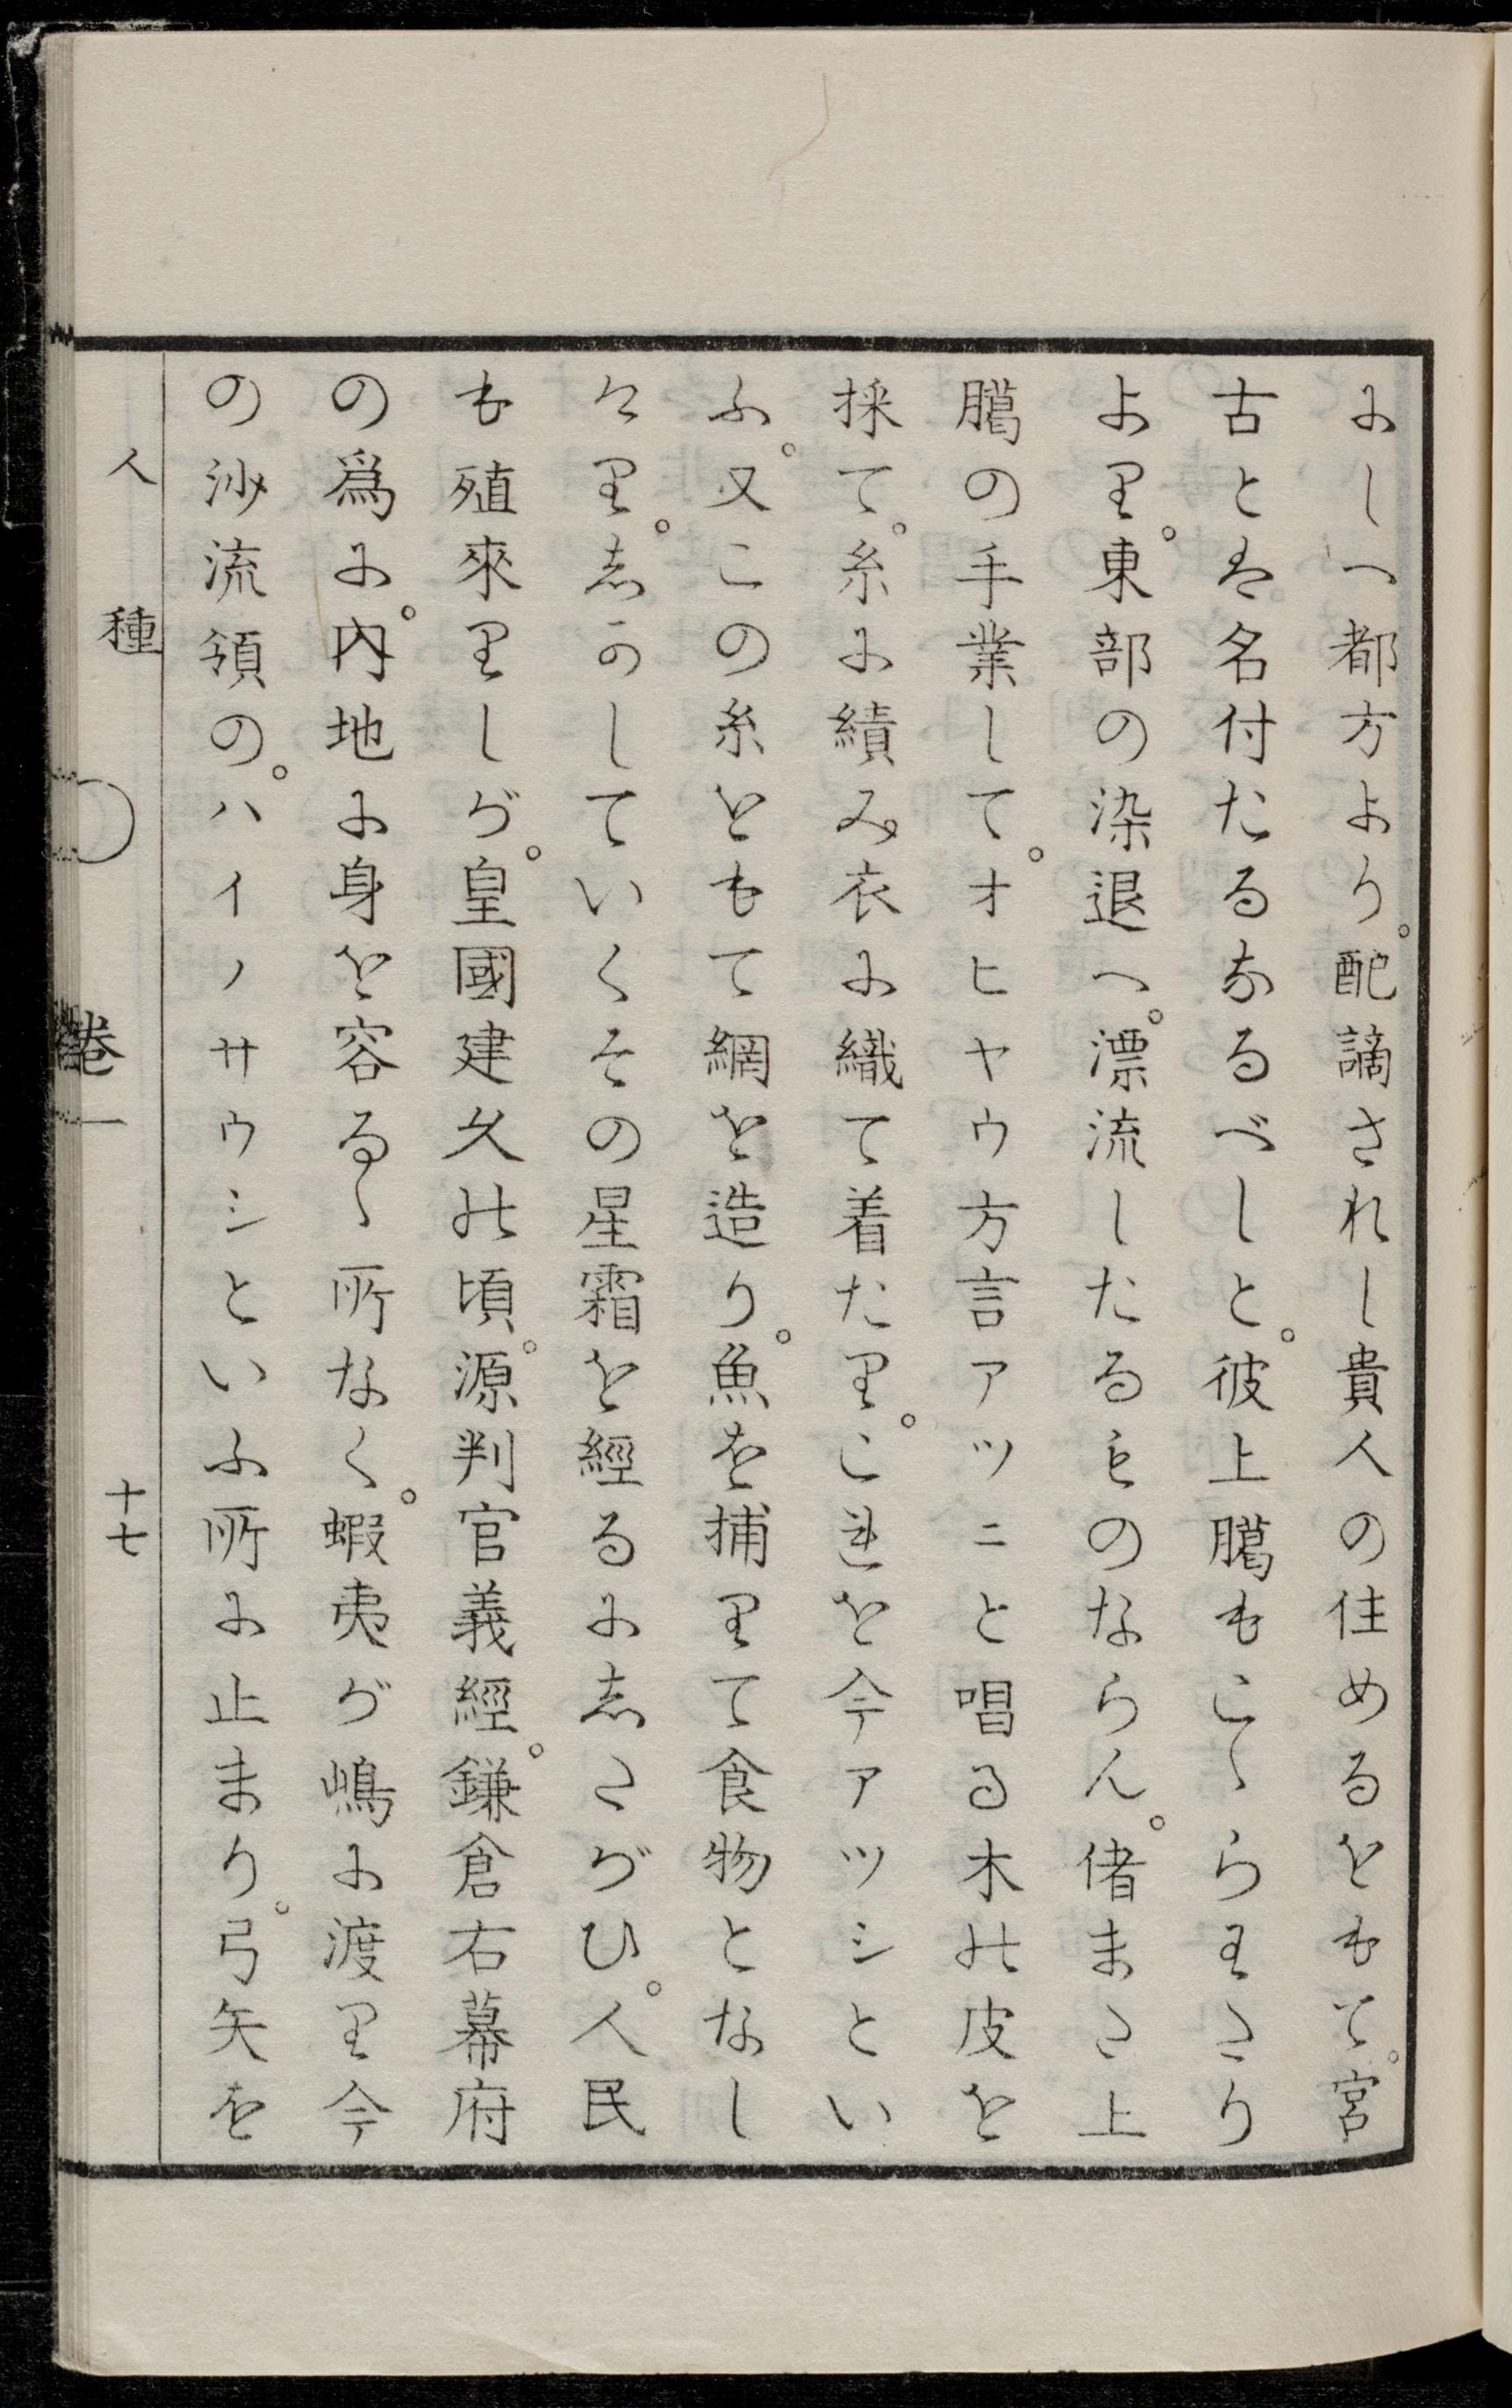 にしへ都方より。配謫されし貴人の住めるをもて。宮
古とは名付たるなるべしと。彼上臈もこゝらわたり
より。東部の染退へ。漂流したるものならん。偖また上
臈の手業して。オヒヤウ方言アツニと唱る木の皮を
採て。糸に績み衣に織て着たり。これを今アツシとい
ふ。又この糸をもて網を造り。魚を捕りて食物となし
けり。しかしていくその星霜を經るにしたがひ。人民
も殖來りしが。皇國建久の頃。源判官義經。鎌倉右幕府
の爲に。内地に身を容るゝ所なく。蝦夷が嶋に渡り今
の沙流領の。ハイノサウシといふ所に止まり。弓矢を
人種　〇　卷一　十七